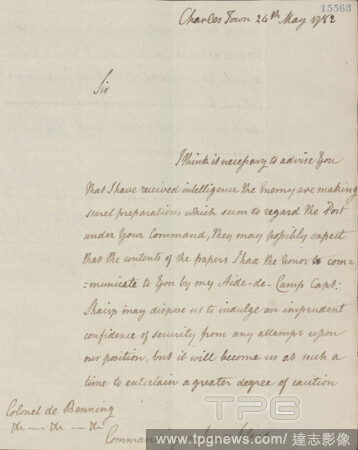 15563
Charles Town 24th May 1782
Sir
I think it necessary to advise You
that I have received intelligence the Enemy are making
secret preparations which seem to regard the Post
under Your Command, they may possibly expect
that the contents of the papers I had the honor to com=
=municate to You by my Aide-de-Camp Capt:
may dispose us to indulge an imprudent
confidence of security from any attempt upon
our position, but it will become us at such a
time to entertain a greater degree of caution
Colonel de Benning
&c — &c — &c
TPG
www.tpgnews.com / 達志影像